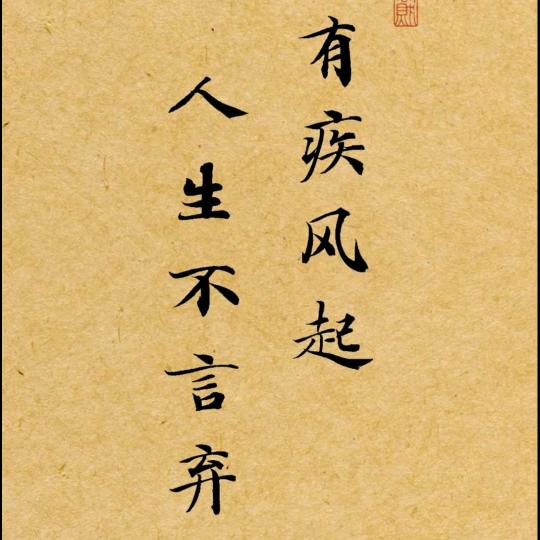 有疾风起
人生不言弃